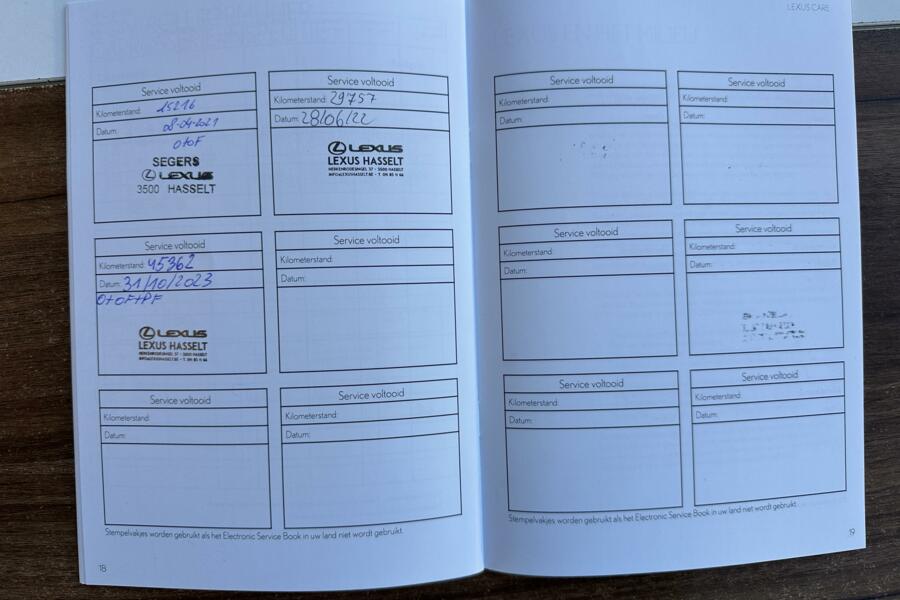 LEXUS CARE
Service voltooid
Kilometerstand: 15216
Datum: 08-04-2021
O+OF
SEGERS
LEXUS
3500 HASSELT
Service voltooid
Kilometerstand: 29757
Datum: 28/06/22
LEXUS
LEXUS HASSELT
HERKENRODESINGEL 37 - 3500 HASSELT
Service voltooid
Kilometerstand: 45362
Datum: 31/10/2023
O+OF+PF
LEXUS
LEXUS HASSELT
HERKENRODESINGEL 37 - 3500 HASSELT
Service voltooid
Kilometerstand:
Datum:
Service voltooid
Kilometerstand:
Datum:
Service voltooid
Kilometerstand:
Datum:
Stempelvakjes worden gebruikt als het Electronic Service Book in uw land niet wordt gebruikt.
18
Service voltooid
Kilometerstand:
Datum:
Service voltooid
Kilometerstand:
Datum:
Service voltooid
Kilometerstand:
Datum:
Service voltooid
Kilometerstand:
Datum:
Service voltooid
Kilometerstand:
Datum:
Service voltooid
Kilometerstand:
Datum:
Stempelvakjes worden gebruikt als het Electronic Service Book in uw land niet wordt gebruikt.
19